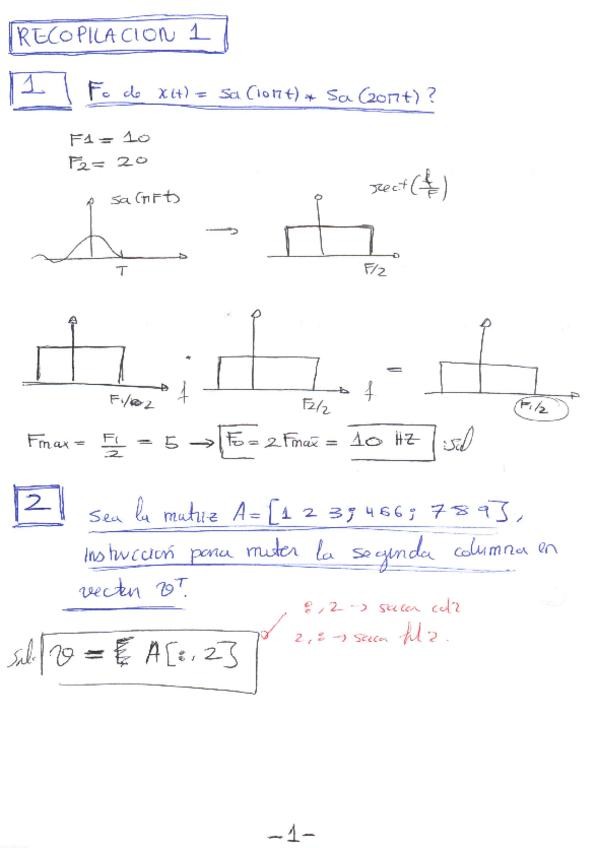 RECOPILACION 1
1 Fo de x(t) = Sa(10πt) * Sa(20πt)?
F1 = 10
F2 = 20
Sa(πFt)
rect(f/F)
T
F/2
F1/2 f . F2/2 f = F1/2
Fmax = F1/2 = 5 → Fo = 2Fmax = 10 HZ :sol
2 Sea la matriz A = [1 2 3; 4 5 6; 7 8 9],
instrucción para meter la segunda columna en
vector vᵀ.
:,2 → sacar col 2
2,: → sacar fil 2.
sol: v = A[:,2]
-1-